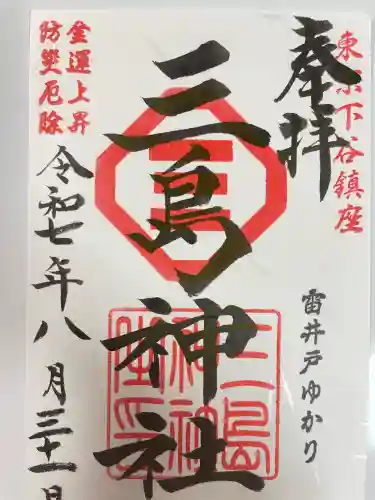 奉拝
東京下谷鎮座
雷井戸ゆかり
三島神社
三島神社之印
金運上昇
防災厄除
令和七年八月三十一日